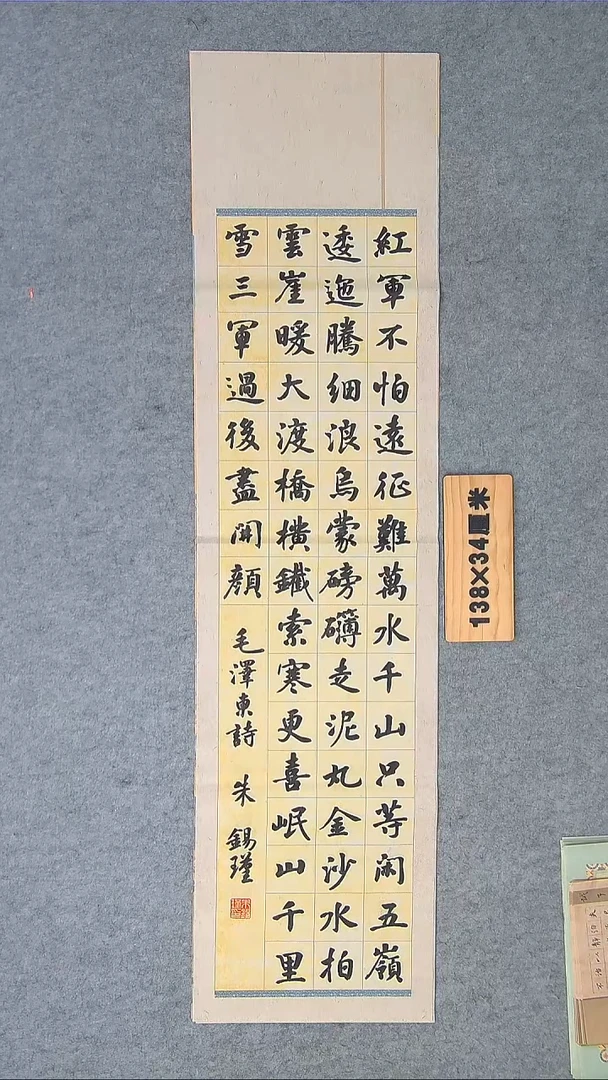 紅軍不怕遠征難萬水千山只等闲五嶺
逶迤騰細浪烏蒙磅礴走泥丸金沙水拍
雲崖暖大渡橋横鐵索寒更喜岷山千里
雪三軍過後盡開顔 毛澤東詩 朱錫瑾
138×34厘米